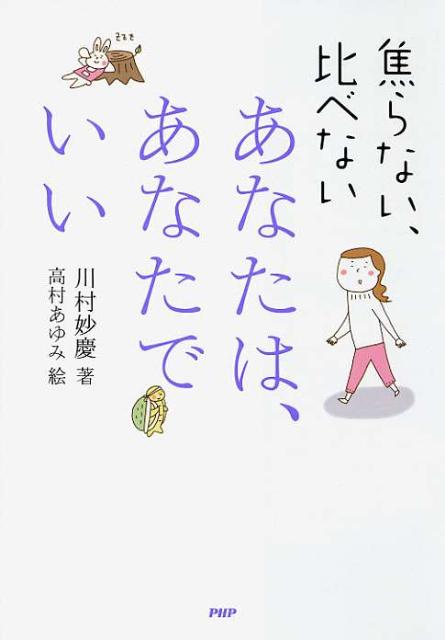 焦らない、
比べない
あなたは、
あなたで
いい
川村妙慶 著
高村あゆみ 絵
PHP